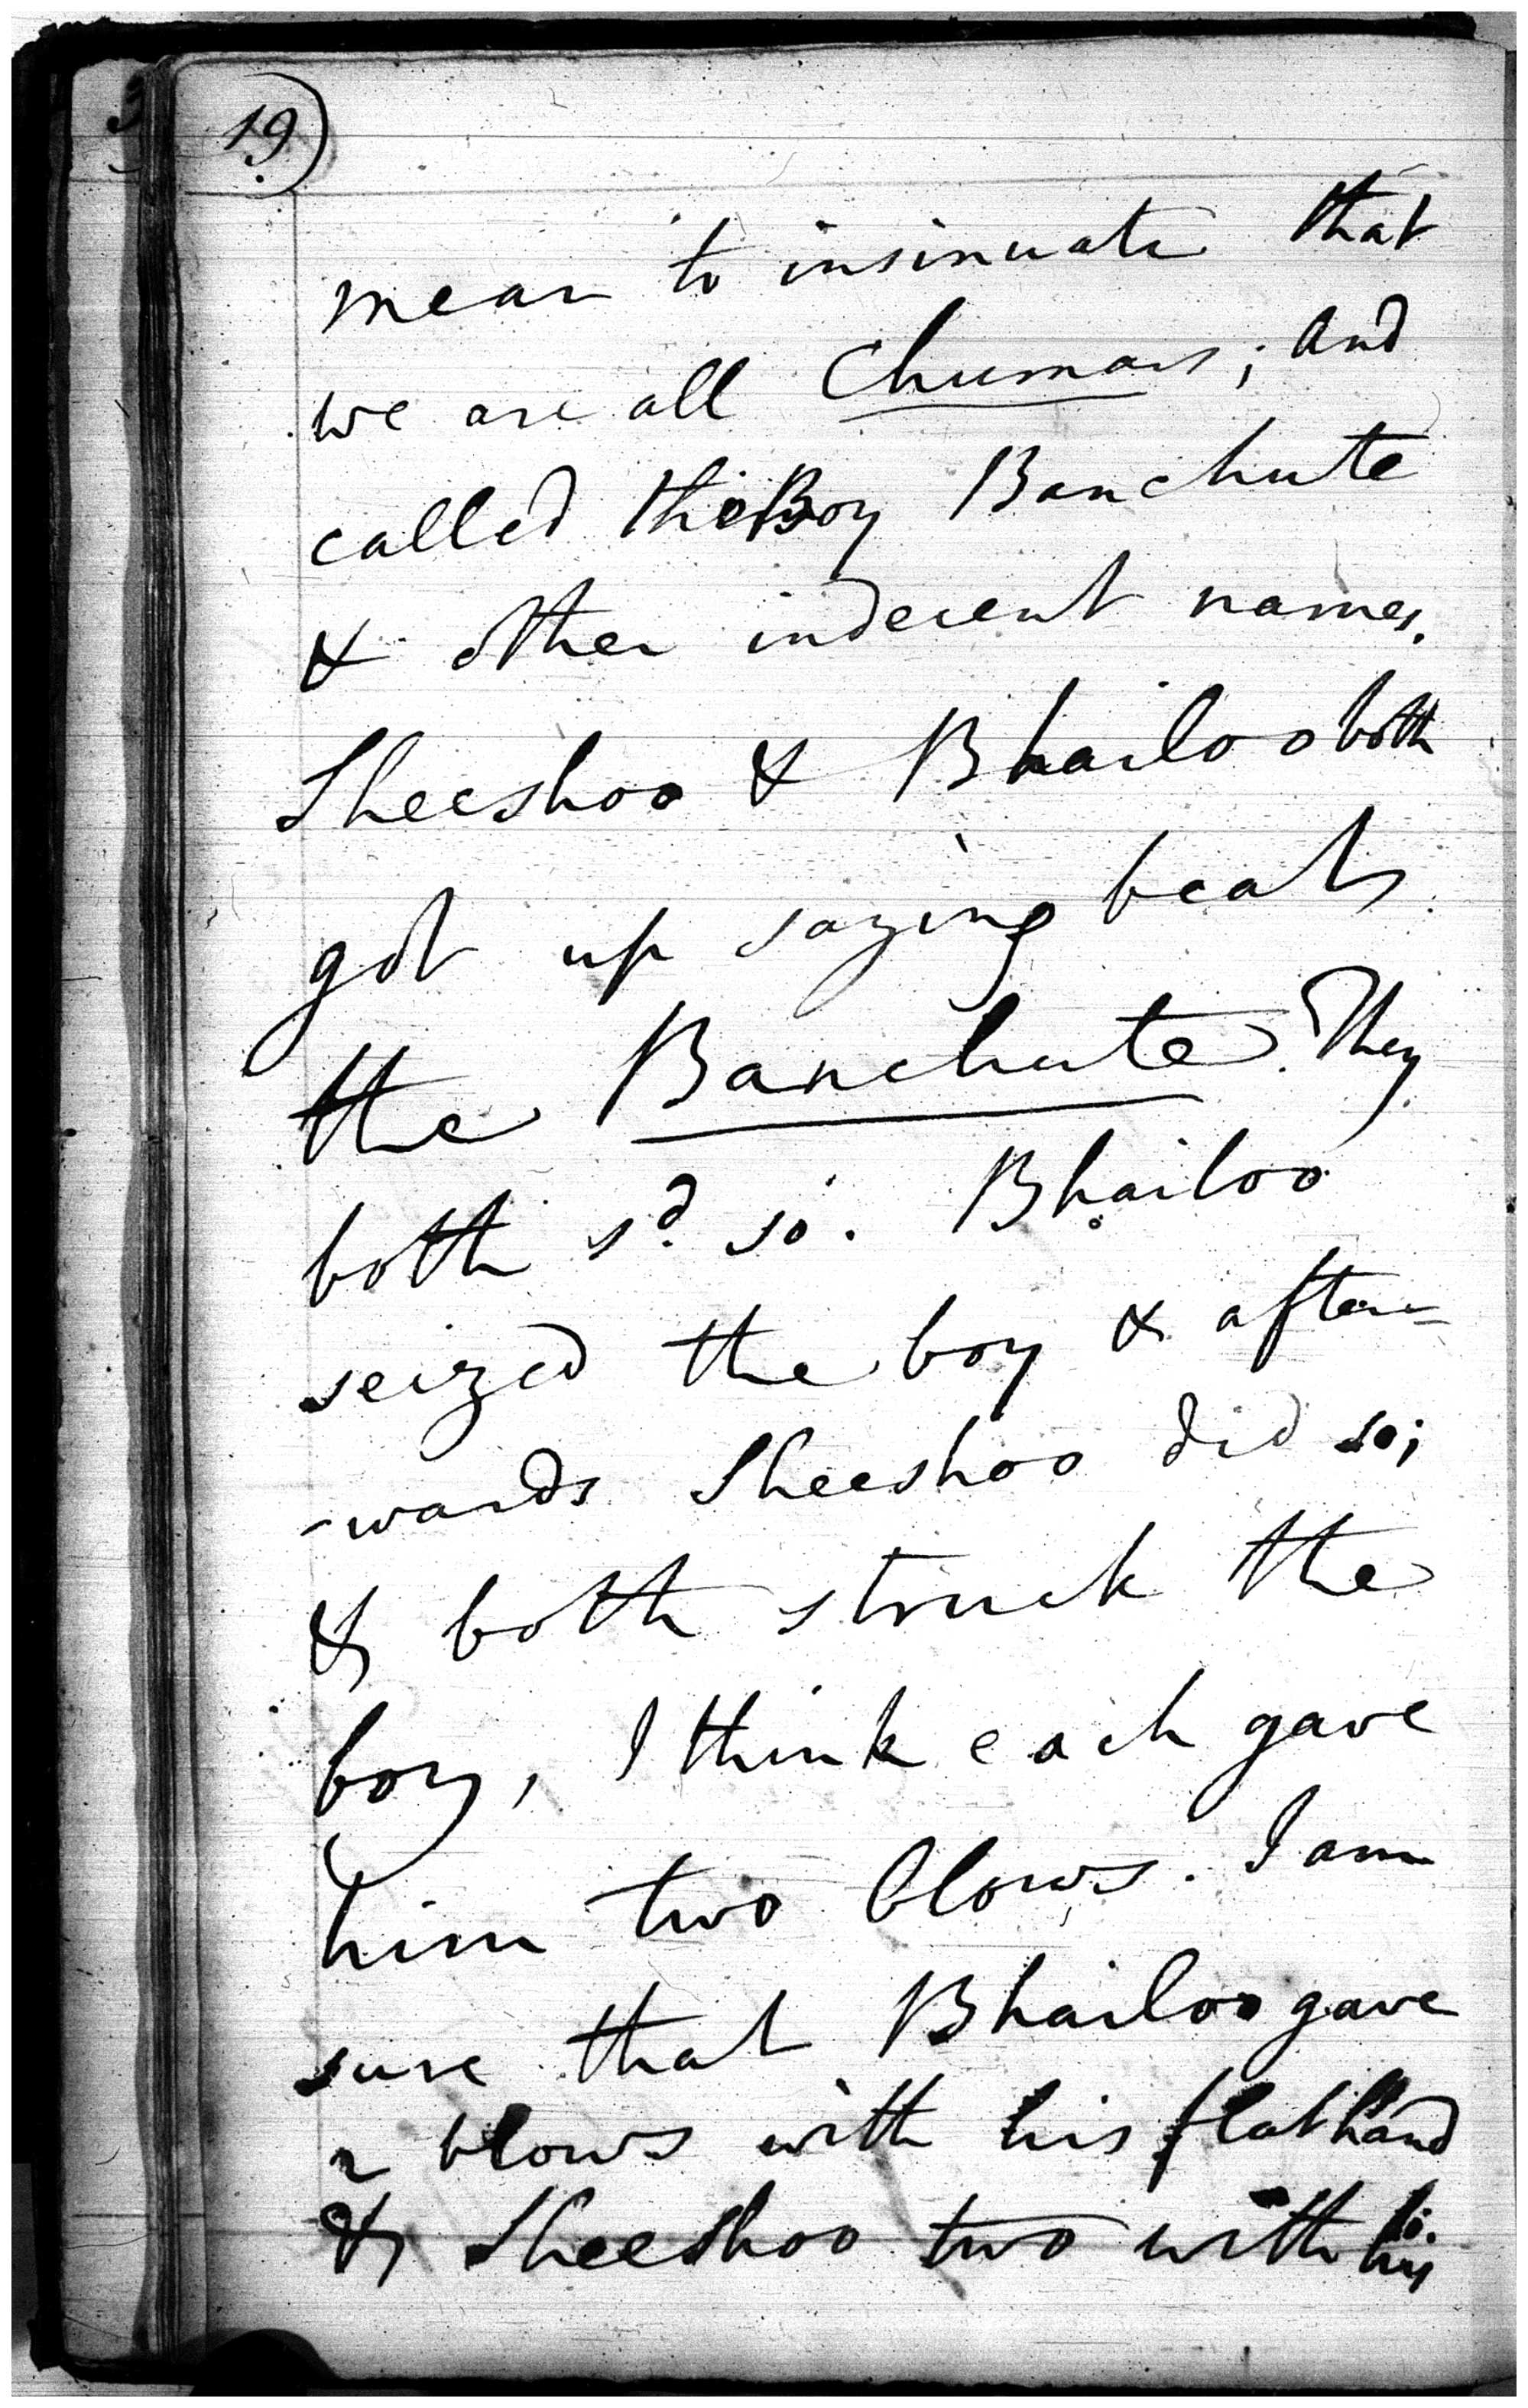 19)
mean to insinuate that
we are all Chumars; and
called the Boy Banchute
& other indecent names.
Sheeshoo & Bhailoo both
got up saying beat
the Banchute. They
both sd. so. Bhailoo
seized the boy & after=
-wards Sheeshoo did so;
& both struck the
boy, I think each gave
him two blows. I am
sure that Bhailoo gave
2 blows with his flat hand
& Sheeshoo two with his